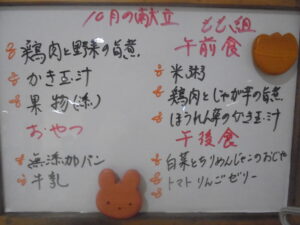 10月の献立 もも組
鶏肉と野菜の旨煮
かき玉汁
果物(柿)
おやつ
無添加パン
牛乳
午前食
米粥
鶏肉とじゃが芋の旨煮
ほうれん草のかき玉汁
午後食
白菜とちりめんじゃこのおじや
トマトりんごゼリー